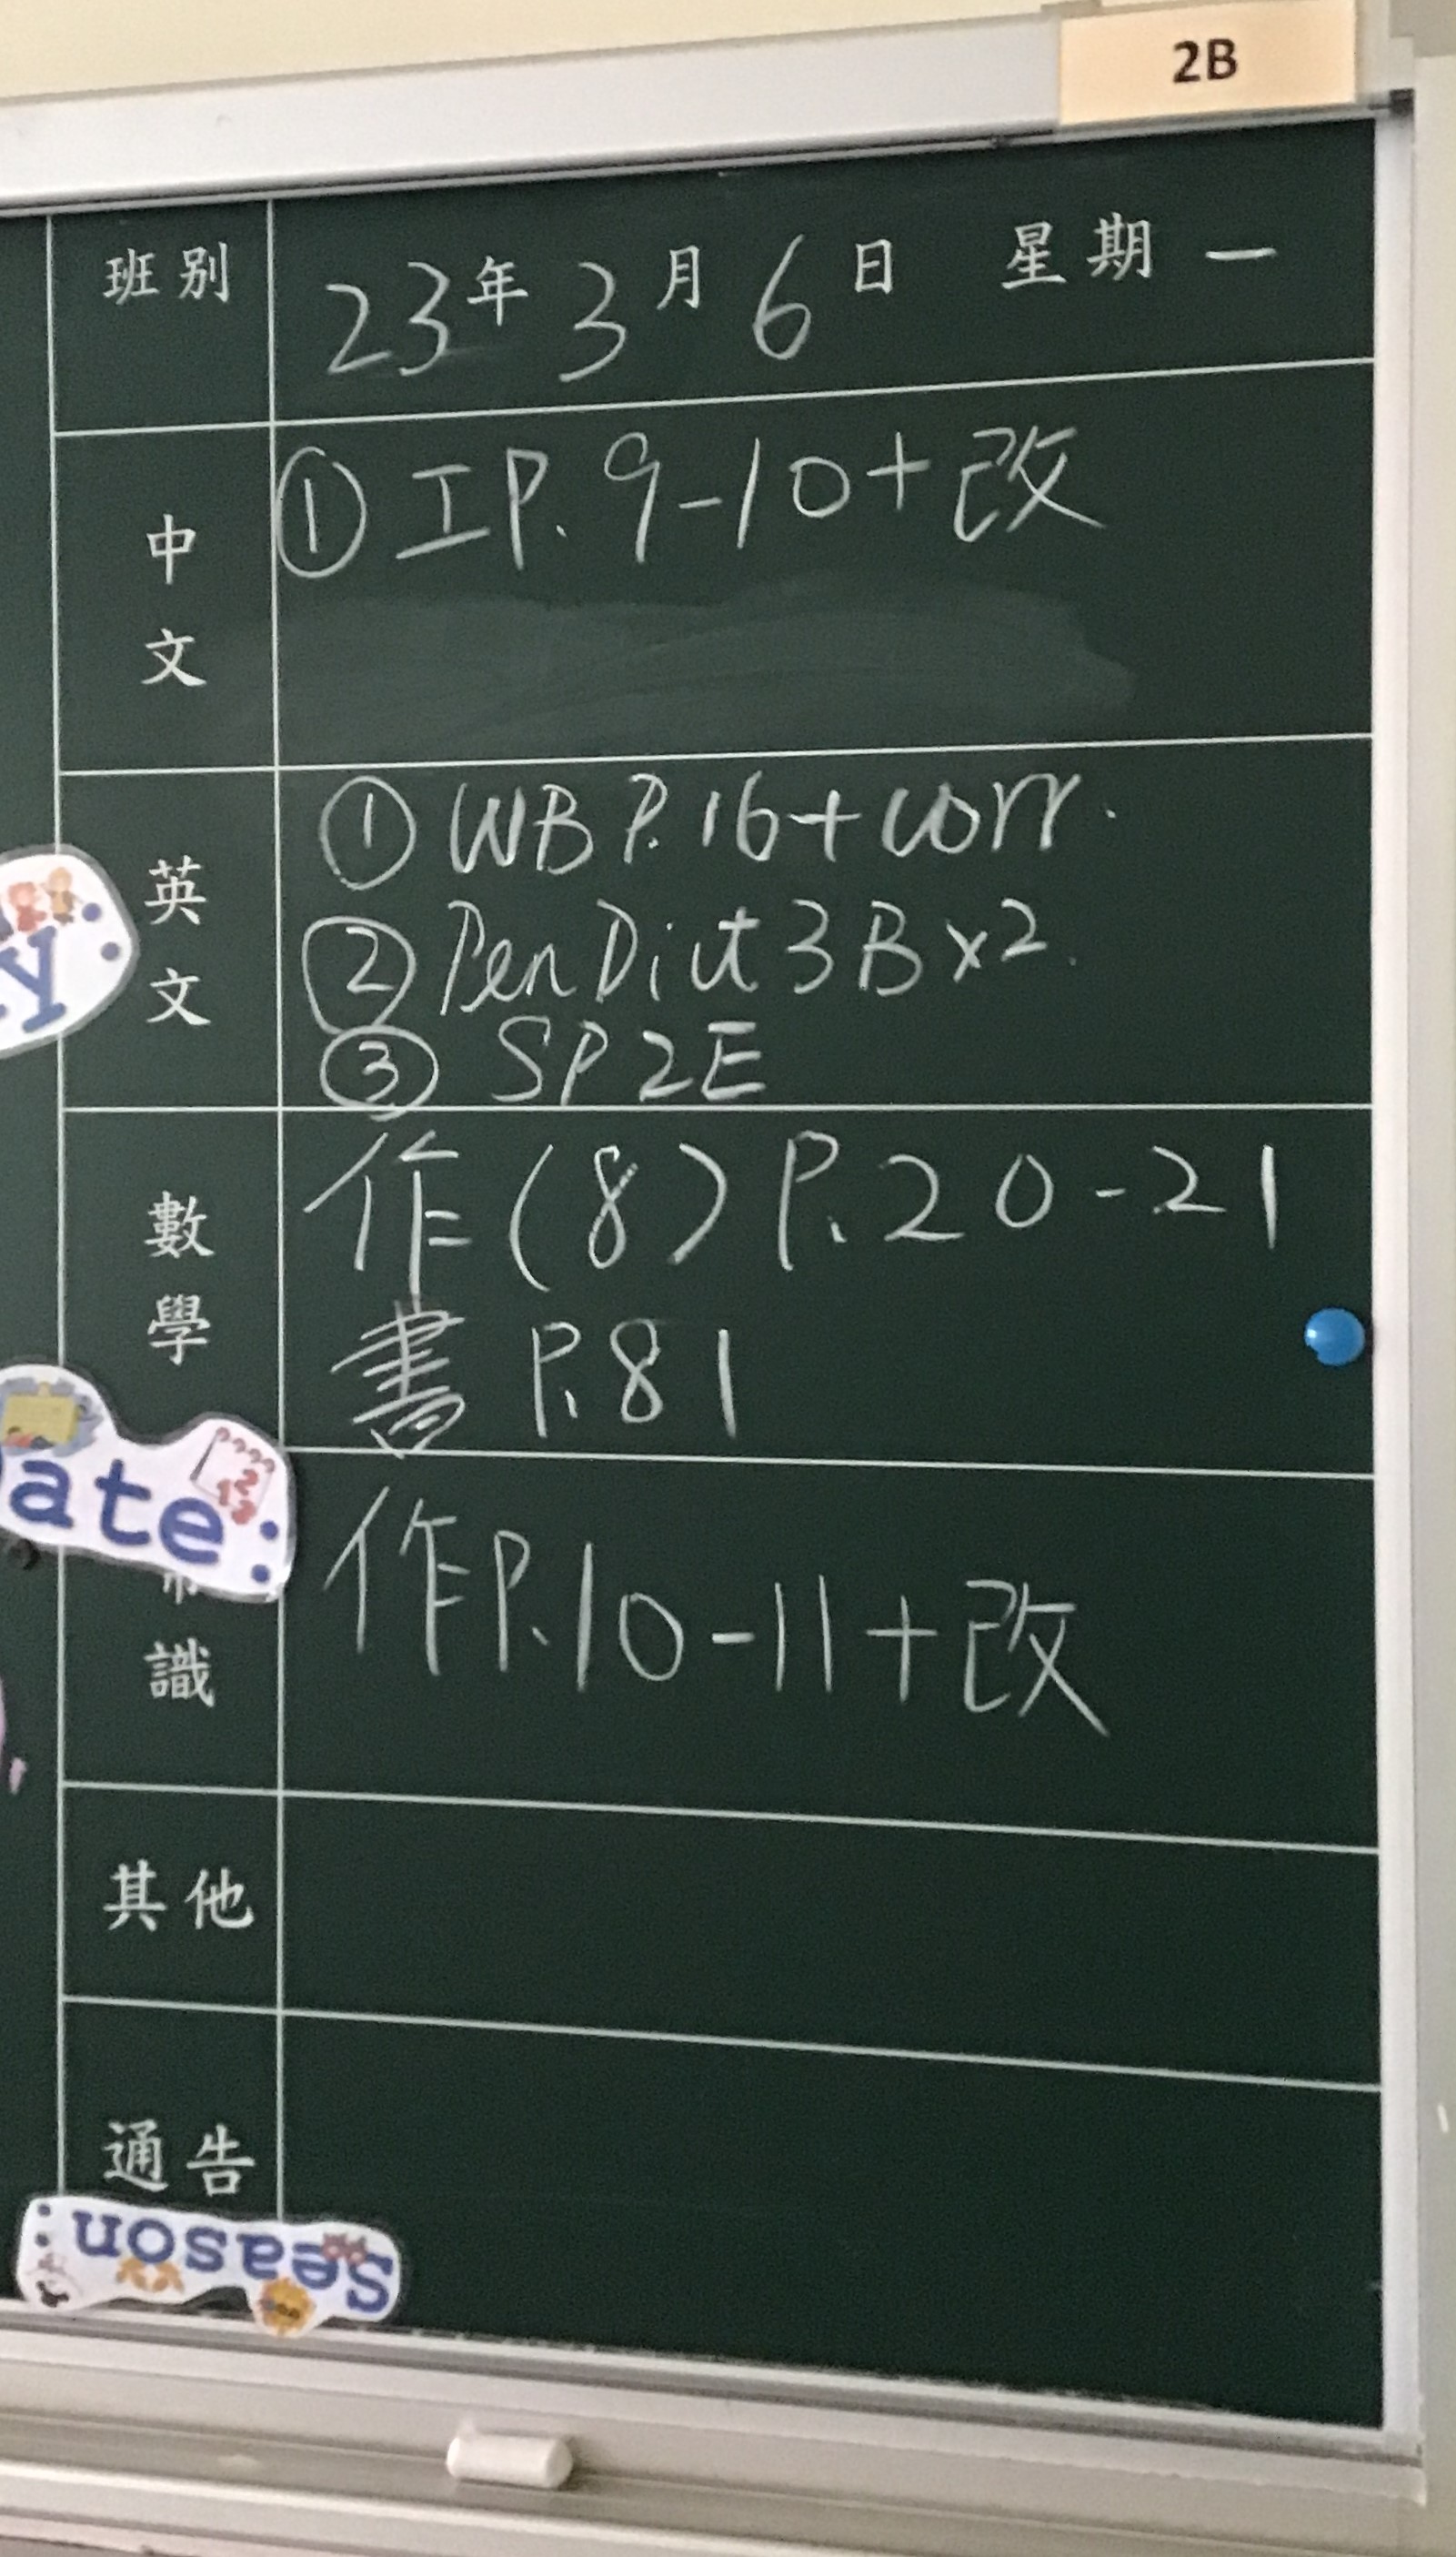 2B
班別 23年3月6日 星期一
中文 ① 工P.9-10+改
英文 ① WB P.16+corr.
② Pen Dict 3B x2.
③ SP2E
數學 作(8)P.20-21
書 P.81
識 作P.10-11+改
其他
通告
y:
ate:
12
3
Season: